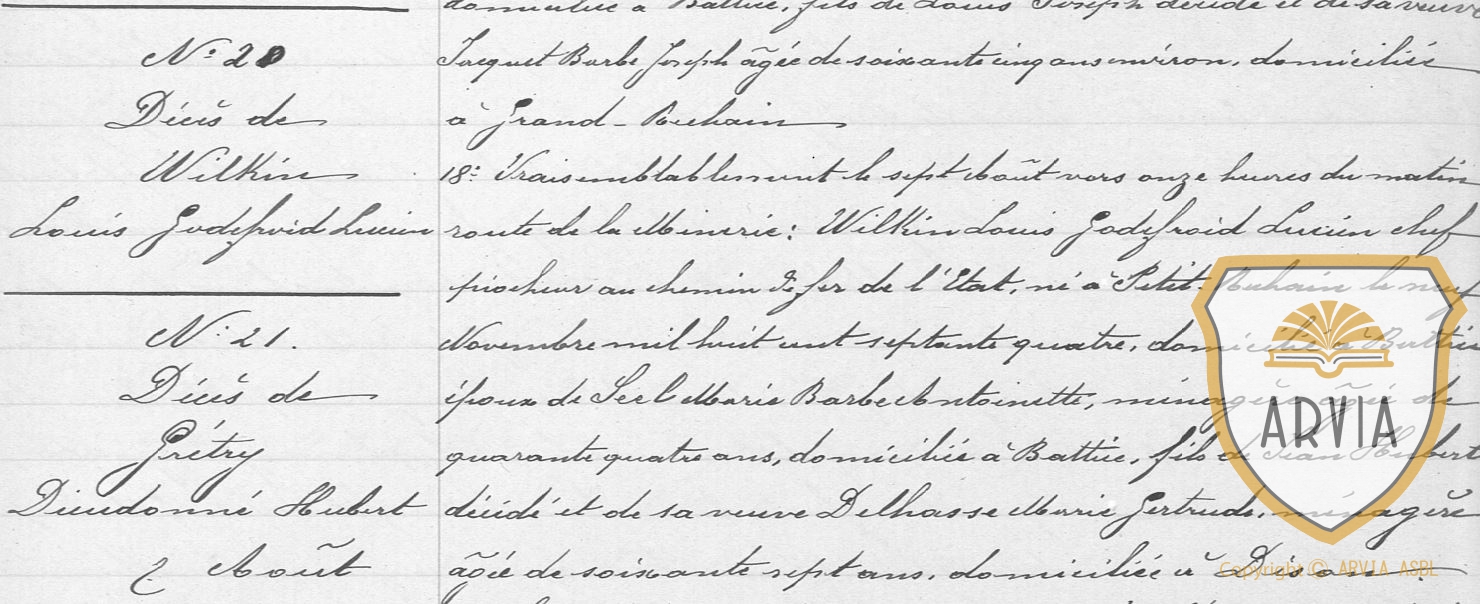 domiciliée à Battice, fils de Louis Joseph décédé et de sa veuve
Jacquet Barbe Joseph âgée de soixante cinq ans environ, domiciliée
à Grand-Rechain
18° Vraisemblablement le sept Août vers onze heures du matin
route de la Minerie: Wilkin Louis Godefroid Lucien chef
piocheur au chemin de fer de l'Etat, né à Petit-Rechain le neuf
Novembre mil huit cent septante quatre, domicilié à Battice
époux de Seel Marie Barbe Antoinette, ménagère âgée de
quarante quatre ans, domiciliée à Battice, fils de Jean Hubert
décédé et de sa veuve Delhasse Marie Gertrude, ménagère
âgée de soixante sept ans, domiciliée à Dison
N° 20
Décès de
Wilkin
Louis Godefroid Lucien
N° 21.
Décès de
Grétry
Dieudonné Hubert
2 Août
ARVIA
Copyright © ARVIA ASBL